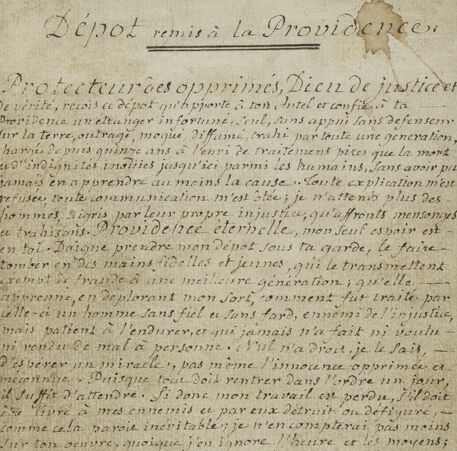 Dépot remis à la Providence.
Protecteur des opprimés, Dieu de justice et
de vérité, reçois ce dépot qu'apporte à ton Autel et confie à ta
Providence un étranger infortuné, seul, sans appui sans defenseur
sur la terre, outragé, moqué, diffamé, trahi par toute une génération,
chargé depuis quinze ans à l'envi de traitemens pires que la mort
et d'indignités inouïes jusqu'ici parmi les humains, sans avoir pu
jamais en apprendre au moins la cause. Toute explication m'est
refusée, toute communication m'est ôtée; je n'attends plus des
hommes, aigris par leur propre injustice, qu'affronts mensonges
et trahisons. Providence éternelle, mon seul espoir est
en toi. Daigne prendre mon dépot sous ta garde, le faire
tomber en des mains fidelles et jeunes, qui le transmettent
exempt de fraude à une meilleure génération; qu'elle
apprenne, en déplorant mon sort, comment fut traité par
celle-ci un homme sans fiel et sans fard, ennemi de l'injustice,
mais patient à l'endurer, et qui jamais n'a fait ni voulu
ni rendu de mal à personne. Nul n'a droit, je le sais,
d'espérer un miracle, pas même l'innocence opprimée et
méconnue. Puisque tout doit rentrer dans l'ordre un jour,
il suffit d'attendre. Si donc mon travail est perdu, s'il doit
être livré à mes ennemis et par eux détruit ou défiguré,
comme cela paroit inévitable; je n'en compterai pas moins
sur ton œuvre, quoique j'en ignore l'heure et les moyens;